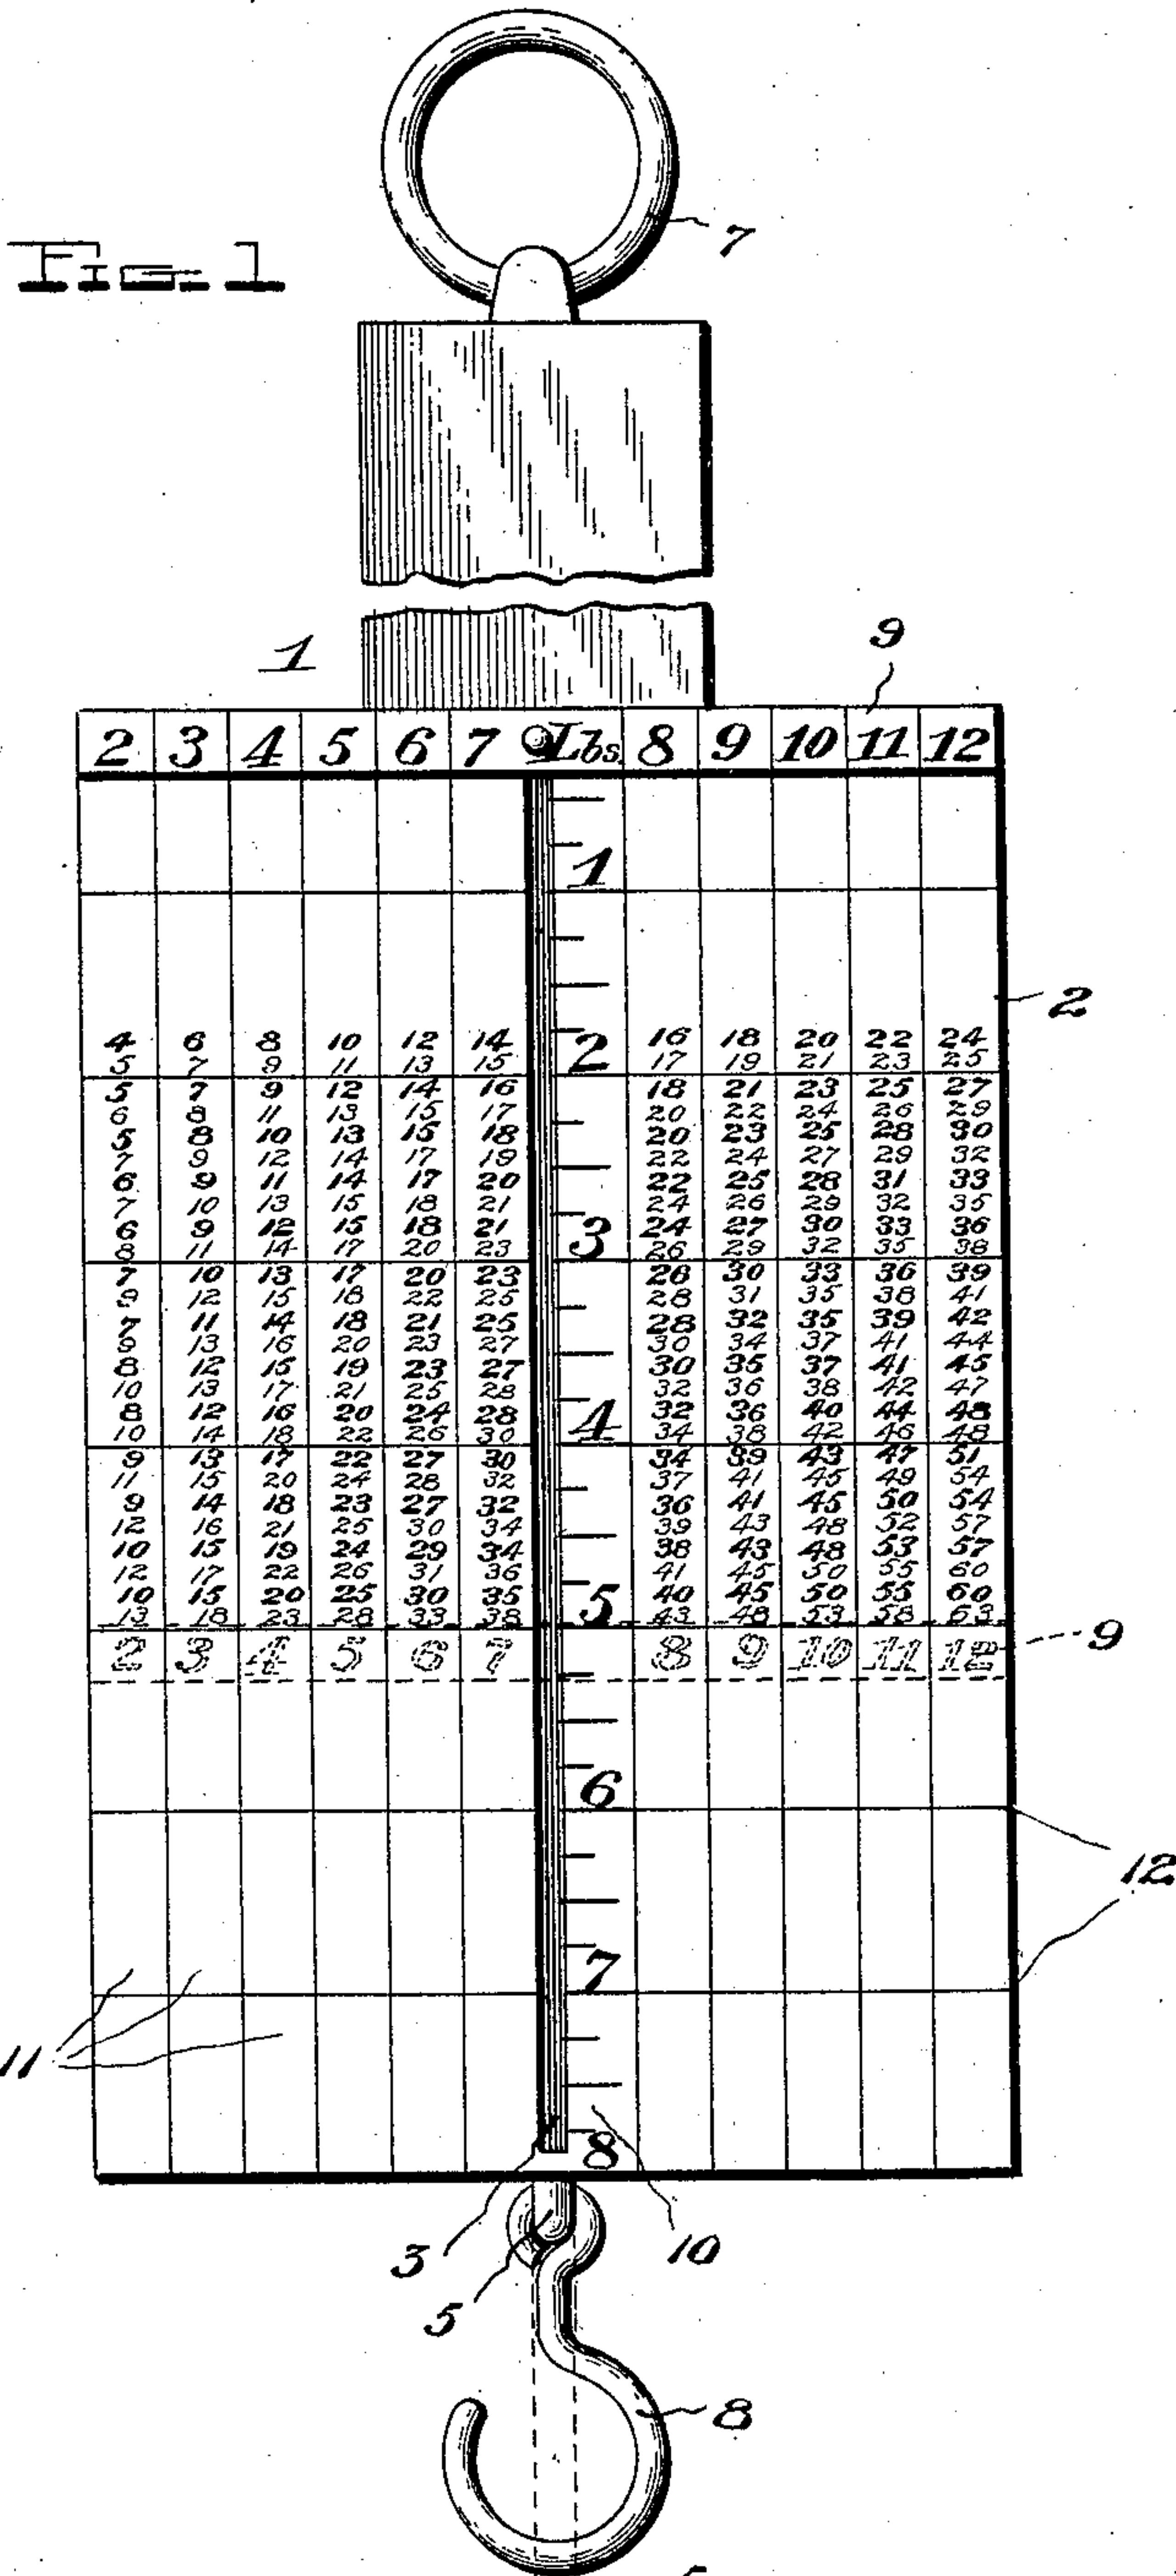 7
Fig. 1
1
9
2 3 4 5 6 7 Lbs. 8 9 10 11 12
1
2
4 6 8 10 12 14 2 16 18 20 22 24
5 7 9 11 13 15 17 19 21 23 25
5 7 9 12 14 16 18 21 23 25 27
6 8 11 13 15 17 20 22 24 26 29
5 8 10 13 15 18 20 23 25 28 30
7 9 12 14 17 19 22 24 27 29 32
6 9 11 14 17 20 22 25 28 31 33
7 10 13 15 18 21 24 26 29 32 35
6 9 12 15 18 21 3 24 27 30 33 36
8 11 14 17 20 23 26 29 32 35 38
7 10 13 17 20 23 26 30 33 36 39
9 12 15 18 22 25 28 31 35 38 41
7 11 14 18 21 25 28 32 35 39 42
9 13 16 20 23 27 30 34 37 41 44
8 12 15 19 23 27 30 35 37 41 45
10 13 17 21 25 28 32 36 38 42 47
8 12 16 20 24 28 4 32 36 40 44 48
10 14 18 22 26 30 34 38 42 46 48
9 13 17 22 27 30 34 39 43 47 51
11 15 20 24 28 32 37 41 45 49 54
9 14 18 23 27 32 36 41 45 50 54
12 16 21 25 30 34 39 43 48 52 57
10 15 19 24 29 34 38 43 48 53 57
12 17 22 26 31 36 41 45 50 55 60
10 15 20 25 30 35 5 40 45 50 55 60
13 18 23 28 33 38 43 48 53 58 63
2 3 4 5 6 7 8 9 10 11 12 9
6
12
7
11
8
3 10
5
8